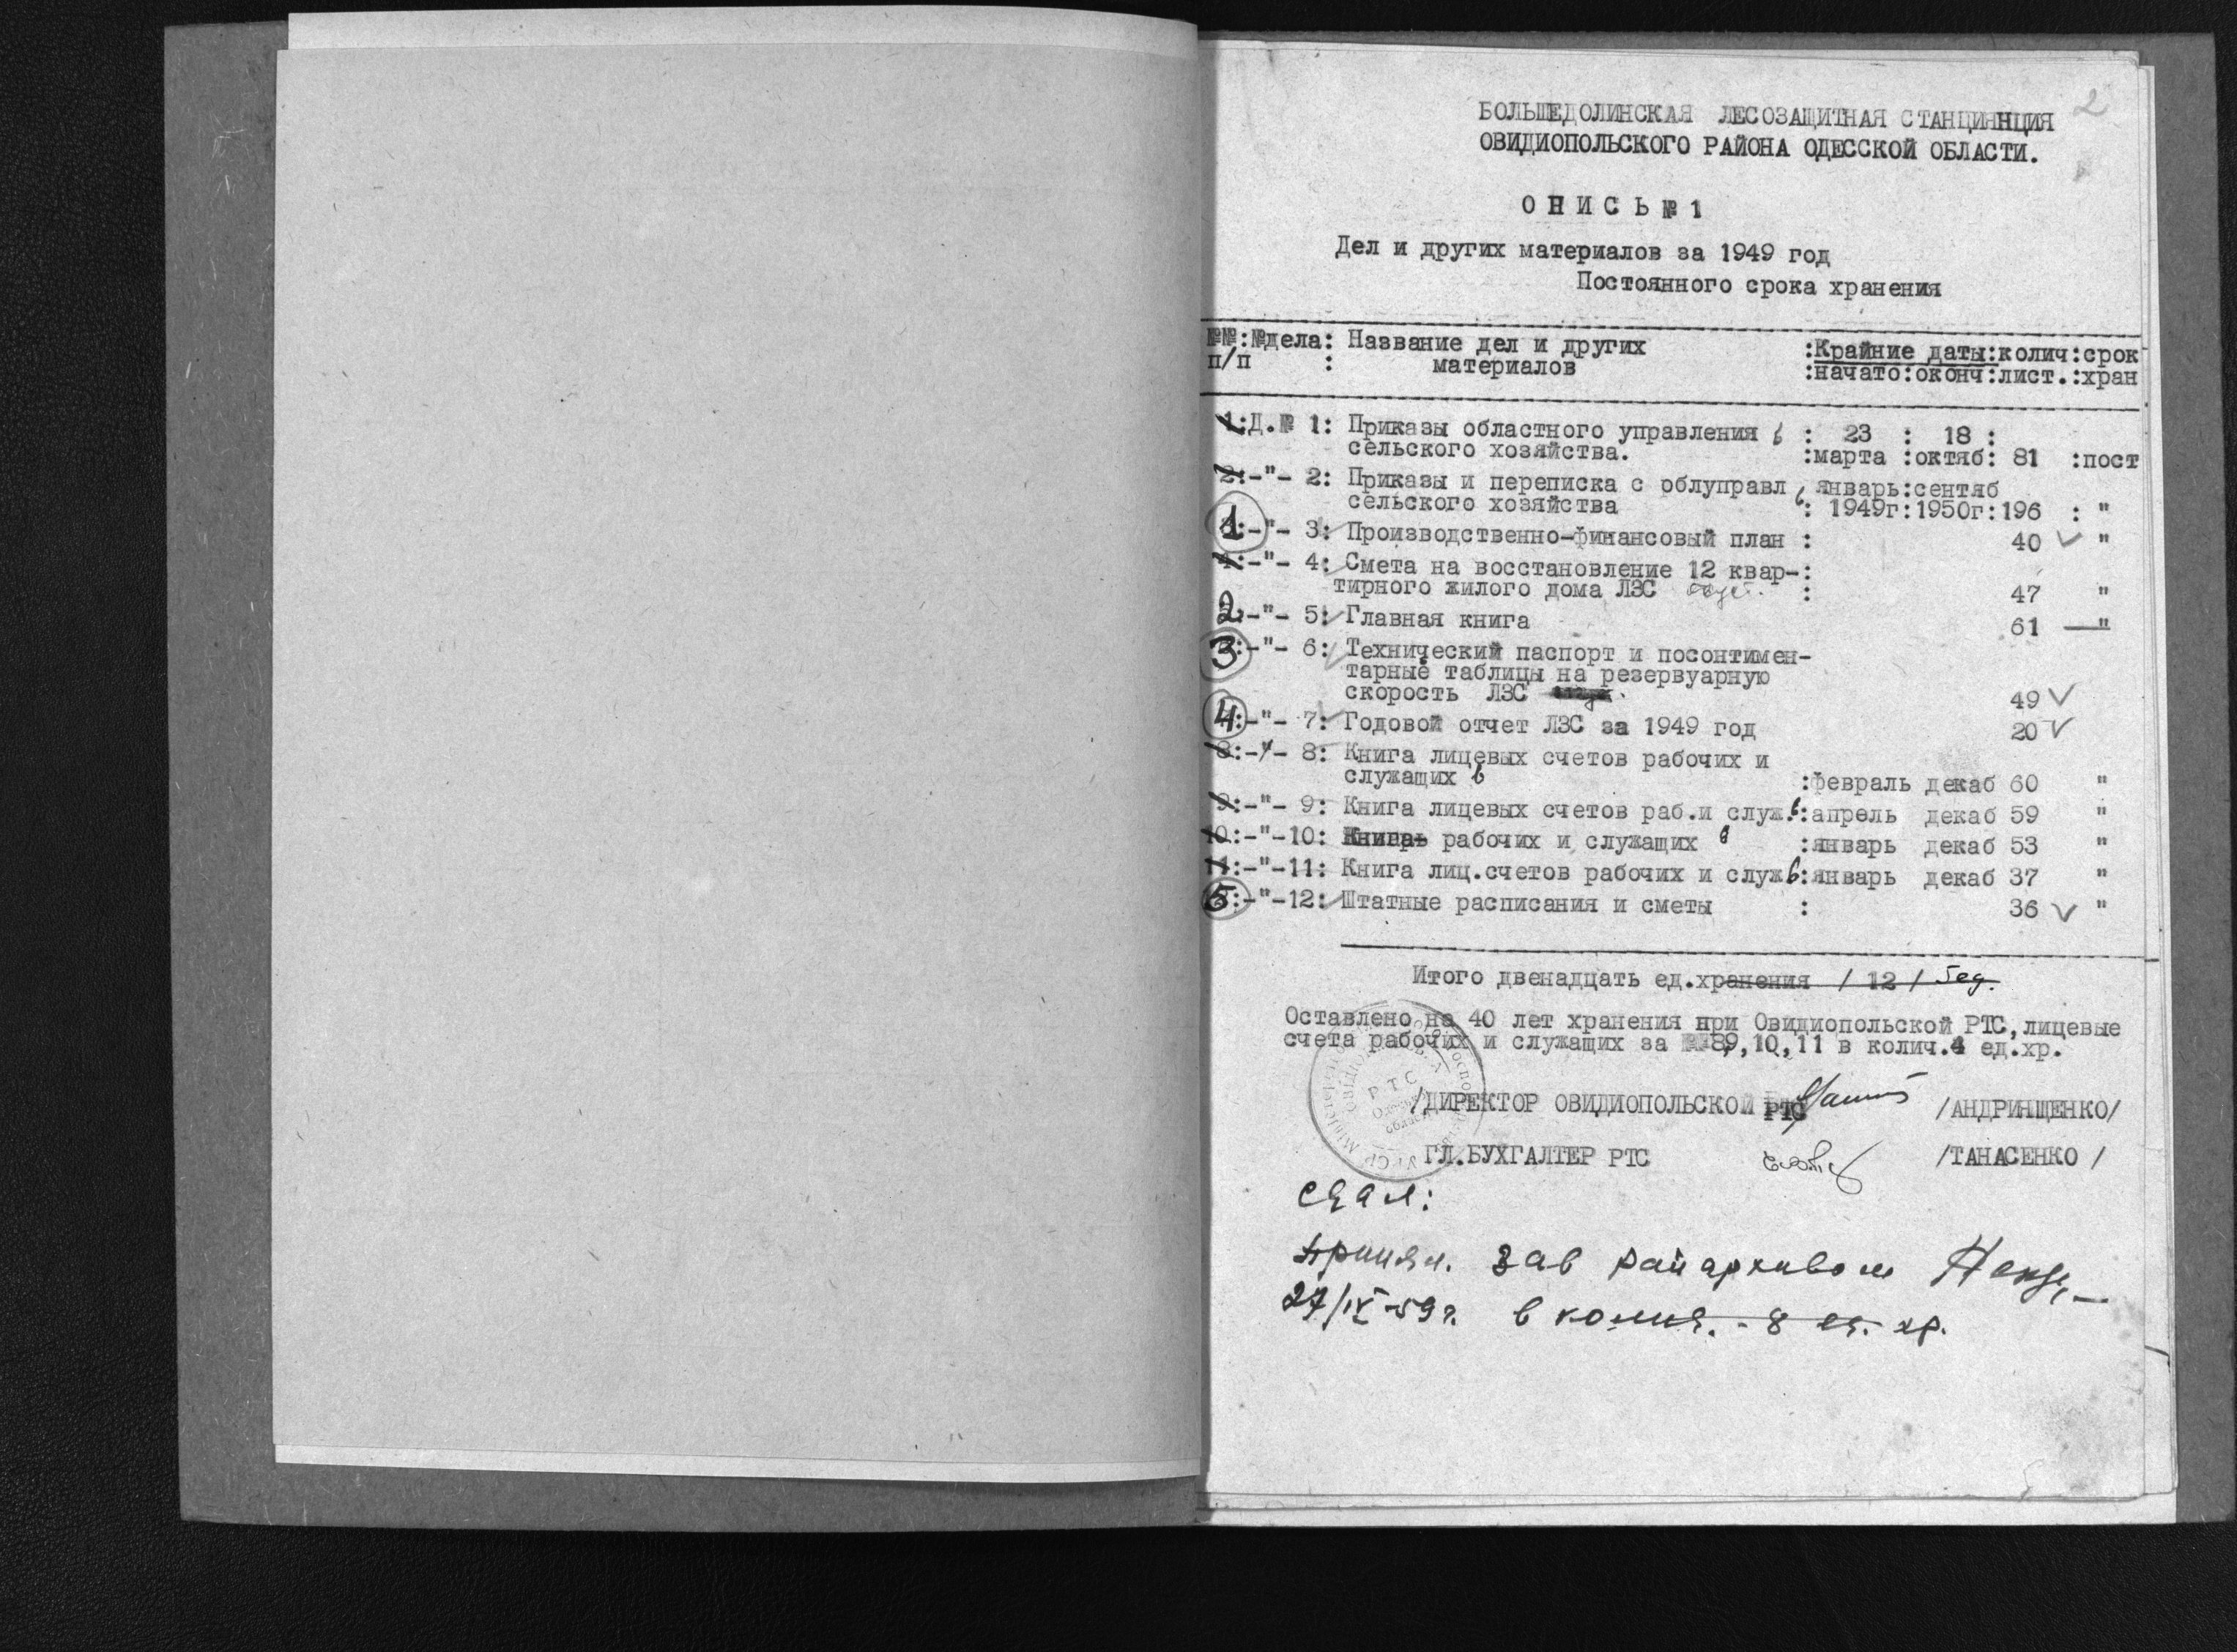 2
БОЛЬШЕДОЛИНСКАЯ ЛЕСОЗАЩИТНАЯ СТАНЦИЯНЦИЯ
ОВИДИОПОЛЬСКОГО РАЙОНА ОДЕССКОЙ ОБЛАСТИ.
О П И С Ь № 1
Дел и других материалов за 1949 год
Постоянного срока хранения
№№:№дела: Название дел и других :Крайние даты:колич:срок
п/п : материалов :начато:оконч:лист.:хран
1:Д.№ 1: Приказы областного управления в : 23 : 18 :
сельского хозяйства. :марта :октяб: 81 :пост
2:-"- 2: Приказы и переписка с облуправл в январь:сентяб
сельского хозяйства : 1949г:1950г:196 : "
1:-"- 3: Производственно-финансовый план : 40 "
4:-"- 4: Смета на восстановление 12 квар-:
тирного жилого дома ЛЗС : 47 "
2.-"- 5: Главная книга 61 "
3:-"- 6: Технический паспорт и посонтимен-
тарные таблицы на резервуарную
скорость ЛЗС 49
4:-"- 7: Годовой отчет ЛЗС за 1949 год 20
8:-"- 8: Книга лицевых счетов рабочих и
служащих в :февраль декаб 60 "
9:-"- 9: Книга лицевых счетов раб.и служ.в:апрель декаб 59 "
10:-"-10: Книга рабочих и служащих в :январь декаб 53 "
11:-"-11: Книга лиц.счетов рабочих и служ в:январь декаб 37 "
5:-"-12: Штатные расписания и сметы : 36 "
Итого двенадцать ед.хранения / 12 / 5 ед.
Оставлено на 40 лет хранения при Овидиопольской РТС,лицевые
счета рабочих и служащих за №№8,9,10,11 в колич.4 ед.хр.
/ДИРЕКТОР ОВИДИОПОЛЬСКОЙ РТС /АНДРИЯЩЕНКО/
РТС
ГЛ.БУХГАЛТЕР РТС /ТАНАСЕНКО /
Сдал:
Принял. Зав райархивом
27/IX-59 г. в колич. - 8 ед. хр.